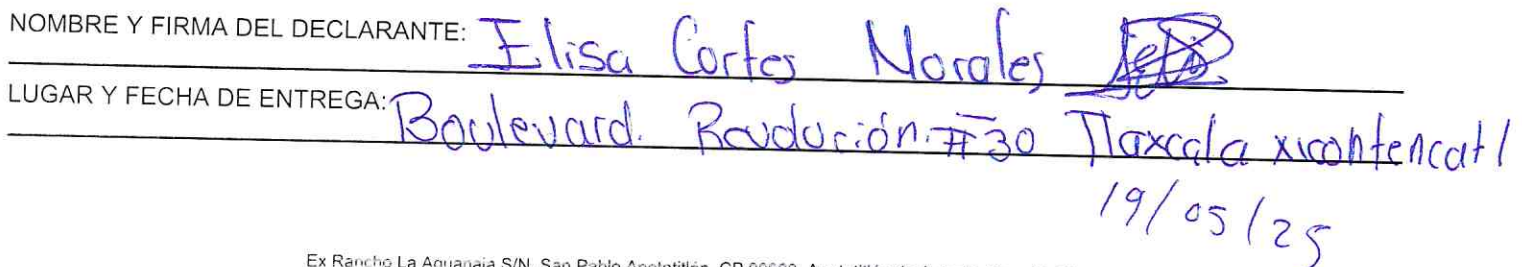 NOMBRE Y FIRMA DEL DECLARANTE: Elisa Cortes Morales
LUGAR Y FECHA DE ENTREGA: Boulevard. Revolución. #30 Tlaxcala xicohtencatl
19/05/25
Ex Rancho La Aguanaja S/N, San Pablo